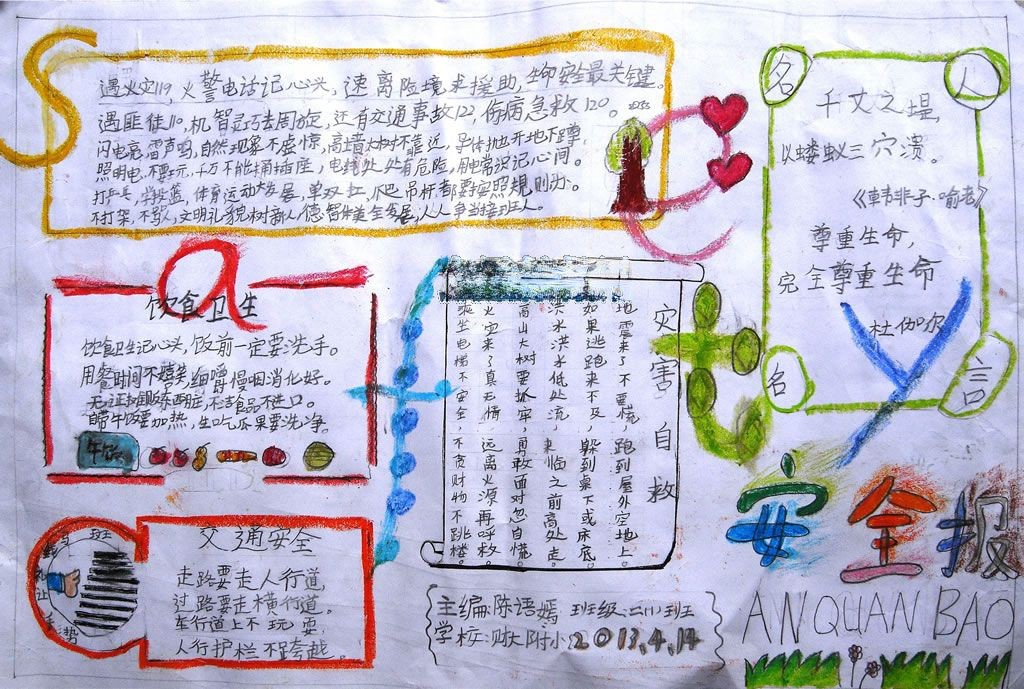 遇火灾119，火警电话记心头，速离险境求援助，生命安全最关键。
遇匪徒110，机智灵巧去周旋，还有交通事故122，伤病急救120。
闪电亮，雷声鸣，自然现象不惊，高墙大树不靠近，
照明电，不要玩，千万不能捅插座，电线处处有危险，用电常识记心间。
打乒乓，学投篮，体育运动大发展，单双杠，爬吊杆都要按照规则办。
不打架，不骂人，文明礼貌树新人，德智体美全发展，人人争当接班人。
名人名言
千丈之堤，
以蝼蚁之穴溃。
《韩非子·喻老》
尊重生命，
完全尊重生命
杜伽尔
饮食卫生
饮食卫生记心头，饭前一定要洗手。
用餐时间不嬉笑，细嚼慢咽消化好。
无证摊贩东西脏，不洁食品不进口。
自带午饭要加热，生吃瓜果要洗净。
午饭
灾害自救
地震来了不要慌，跑到屋外空地上。
如果逃跑来不及，躲到桌下或床底。
洪水洪水低处流，来临之前高处走。
高山大树要抓牢，勇敢面对忽自慌。
火灾来了真无情，远离火源再呼救。
乘坐电梯不安全，不贪财物不跳楼。
交通安全
走路要走人行道，
过路要走横行道。
车行道上不玩耍，
人行护栏不跨越。
礼让手势
主编：陈语嫣 班级：二（1）班
学校：财大附小 2013.4.14
安全报
AN QUAN BAO
Safety